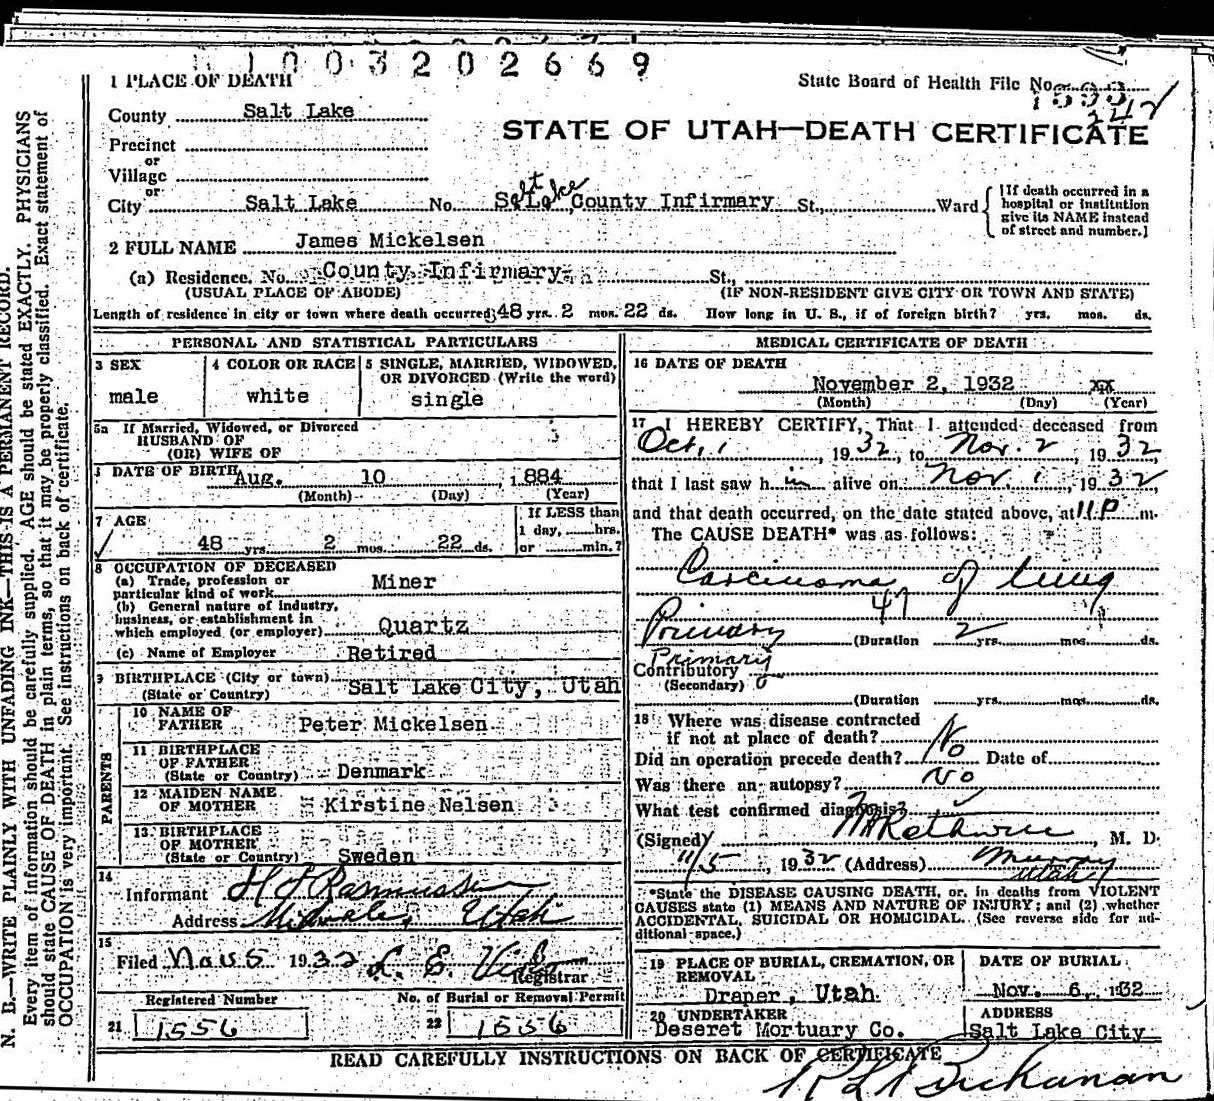 1003202669
1 PLACE OF DEATH
State Board of Health File No.
County Salt Lake
STATE OF UTAH—DEATH CERTIFICATE
Precinct
or
Village
or
City Salt Lake No. Salt Lake County Infirmary St., Ward
[If death occurred in a hospital or institution give its NAME instead of street and number.]
2 FULL NAME James Mickelsen
(a) Residence. No. County Infirmary St.,
(USUAL PLACE OF ABODE) (IF NON-RESIDENT GIVE CITY OR TOWN AND STATE)
Length of residence in city or town where death occurred 48 yrs. 2 mos. 22 ds. How long in U. S., if of foreign birth? yrs. mos. ds.
PERSONAL AND STATISTICAL PARTICULARS
3 SEX
male
4 COLOR OR RACE
white
5 SINGLE, MARRIED, WIDOWED,
OR DIVORCED (Write the word)
single
5a If Married, Widowed, or Divorced
HUSBAND OF
(OR) WIFE OF
DATE OF BIRTH Aug. 10 , 1884
(Month) (Day) (Year)
7 AGE
48 yrs. 2 mos. 22 ds.
If LESS than
1 day, hrs.
or min.?
8 OCCUPATION OF DECEASED
(a) Trade, profession or
particular kind of work Miner
(b) General nature of industry,
business, or establishment in
which employed (or employer) Quartz
(c) Name of Employer Retired
9 BIRTHPLACE (City or town)
(State or Country) Salt Lake City, Utah
PARENTS
10 NAME OF
FATHER Peter Mickelsen
11 BIRTHPLACE
OF FATHER
(State or Country) Denmark
12 MAIDEN NAME
OF MOTHER Kirstine Nelsen
13 BIRTHPLACE
OF MOTHER
(State or Country) Sweden
14
Informant H J Rasmussen
Address Midvale, Utah
15
Filed Nov 5 1932 L. E.
Registrar
Registered Number
21 1556
No. of Burial or Removal Permit
22 1556
MEDICAL CERTIFICATE OF DEATH
16 DATE OF DEATH
November 2, 1932 xx
(Month) (Day) (Year)
17 I HEREBY CERTIFY, That I attended deceased from
Oct. 1, 1932, to Nov. 2, 1932,
that I last saw him alive on Nov. 1, 1932,
and that death occurred, on the date stated above, at 11 P m.
The CAUSE DEATH* was as follows:
Carcinoma of lung
47
Primary (Duration 2 yrs. mos. ds.
Primary
Contributory
(Secondary)
(Duration yrs. mos. ds.
18 Where was disease contracted
if not at place of death?
Did an operation precede death? No Date of
Was there an autopsy? No
What test confirmed diagnosis?
(Signed) M. D.
11/5, 1932 (Address) Murray
Utah
*State the DISEASE CAUSING DEATH, or, in deaths from VIOLENT
CAUSES state (1) MEANS AND NATURE OF INJURY; and (2) whether
ACCIDENTAL, SUICIDAL OR HOMICIDAL. (See reverse side for ad-
ditional space.)
19 PLACE OF BURIAL, CREMATION, OR
REMOVAL
Draper, Utah
DATE OF BURIAL
Nov. 6, 1932
20 UNDERTAKER
Deseret Mortuary Co.
ADDRESS
Salt Lake City
READ CAREFULLY INSTRUCTIONS ON BACK OF CERTIFICATE
Buchanan
N. B.—WRITE PLAINLY WITH UNFADING INK—THIS IS A PERMANENT RECORD.
Every item of information should be carefully supplied. AGE should be stated EXACTLY. PHYSICIANS
should state CAUSE OF DEATH in plain terms, so that it may be properly classified. Exact statement of
OCCUPATION is very important. See instructions on back of certificate.